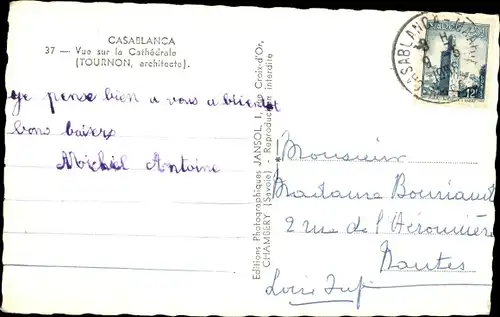 CASABLANCA
37 — Vue sur la Cathédrale
(TOURNON, architecte).
je pense bien a vous a bientot
bons baisers
Michel Antoine
Editions Photographiques JANSOL, 1, Croix-d'Or,
CHAMBÉRY (Savoie) - Reproduction interdite
CASABLANCA
MAROC
Monsieur
Madame
2 rue de l'Héronnière
Nantes
Loire Inf